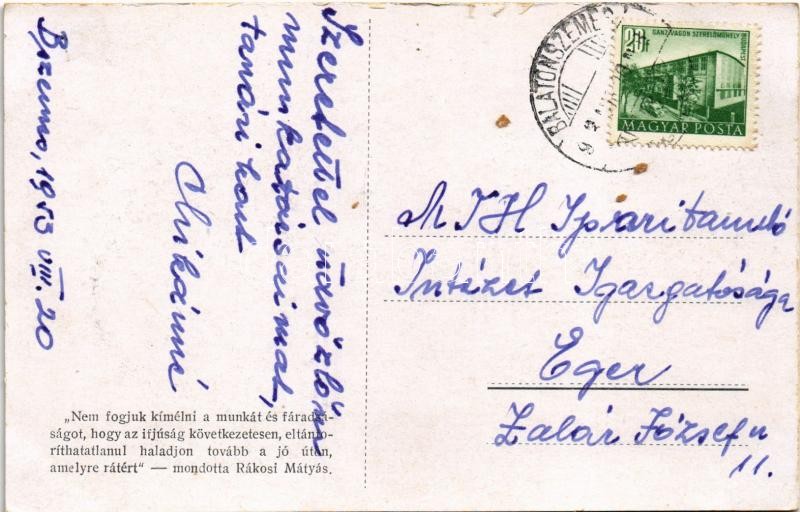 Bszemes, 1953 VIII. 20
Szeretettel üdvözlöm
munkatársaimat,
tanári kart
Mikánné
„Nem fogjuk kímélni a munkát és fáradt-
ságot, hogy az ifjúság következetesen, eltánto-
ríthatatlanul haladjon tovább a jó úton,
amelyre rátért" — mondotta Rákosi Mátyás.
BALATONSZEMES
GANZ VAGON SZERELŐMŰHELY
BUDAPEST
20f
MAGYAR POSTA
MTH Iparitanuló
Intézet Igazgatósága
Eger
Zalár József u
11.